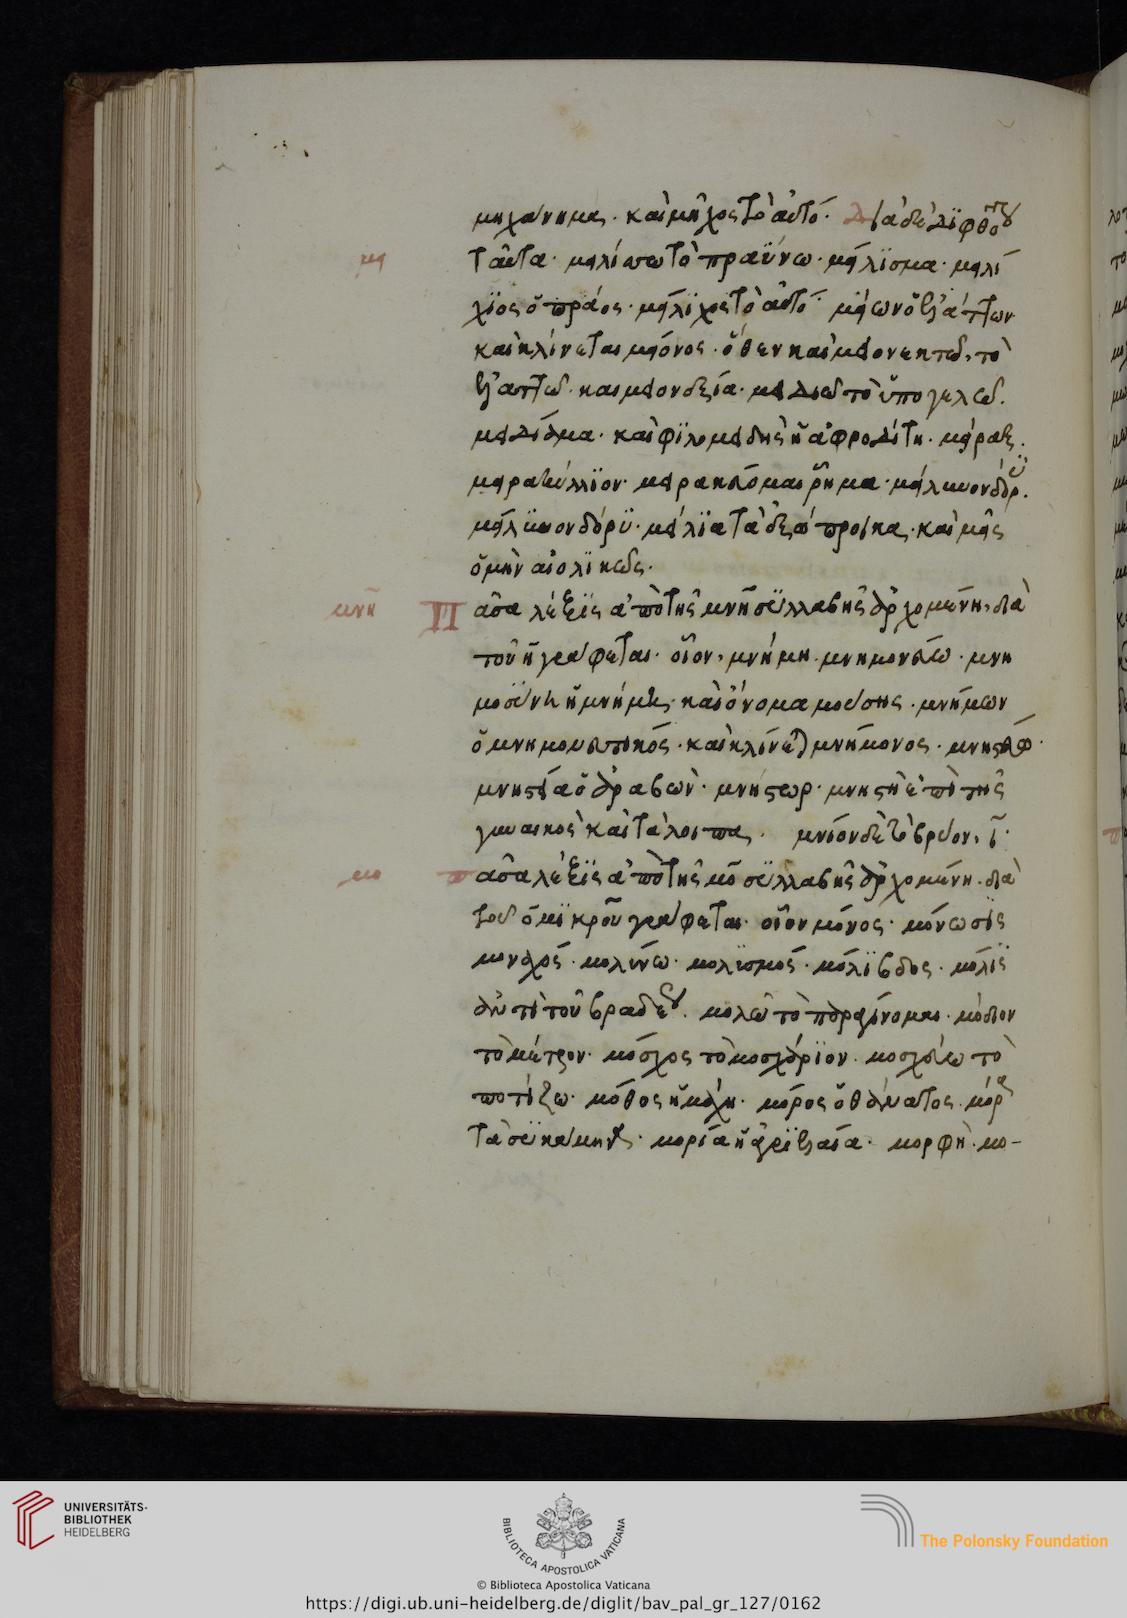 μηχάνημα. καὶ μῆχος τὸ αὐτό. Διὰ δὲ διφθόγγου
μει
ταῦτα. μειλίσσω τὸ πραΰνω. μείλισμα. μειλί
χιος ὁ πρᾶος. μείλιχος τὸ αὐτό. μείων ὁ ἐλάττων
καὶ κλίνεται μείονος. ὅθεν καὶ μειονεκτῶ, τὸ
ἐλαττῶ. καὶ μειονεξία. μειδιῶ τὸ ὑπογελῶ.
μειδίαμα. καὶ φιλομειδὴς ἡ ἀφροδίτη. μεῖραξ.
μειρακύλλιον. μειρακεύομαι ῥῆμα.
μείλια τὰ προῖκα. καὶ μεὶς
ὁ μὴν αἰολικῶς.
μνη
Πᾶσα λέξις ἀπὸ τῆς μνη συλλαβῆς ἀρχομένη, διὰ
τοῦ η γράφεται. οἷον, μνήμη. μνημονεύω. μνη
μοσύνη ἡ μνήμη. καὶ ὄνομα μούσης. μνήμων
ὁ μνημονευτικός. καὶ κλίνεται μνήμονος.
μνηστεία ὁ ἀραβών. μνήστωρ. μνηστὴ ἐπὶ τῆς
γυναικὸς καὶ τὰ λοιπά. μνίον δὲ τὸ βρύον, ι.
μο
πᾶσα λέξις ἀπὸ τῆς μο συλλαβῆς ἀρχομένη. διὰ
τοῦ ο μικροῦ γράφεται. οἷον μόνος. μόνωσις
μοναχός. μολύνω. μολυσμός. μόλιβδος. μόλις
ἀντὶ τοῦ βραδέως. μολῶ τὸ παραγίνομαι. μόδιον
τὸ μέτρον. μόσχος τὸ μοσχάριον. μοσχεύω τὸ
ποτίζω. μόθος ἡ μάχη. μόρος ὁ θάνατος. μόρα
τὰ συκάμηνα. μορία ἡ ἀγριελαία. μορφὴ. μο-
UNIVERSITÄTS-
BIBLIOTHEK
HEIDELBERG
BIBLIOTECA APOSTOLICA VATICANA
The Polonsky Foundation
© Biblioteca Apostolica Vaticana
https://digi.ub.uni-heidelberg.de/diglit/bav_pal_gr_127/0162